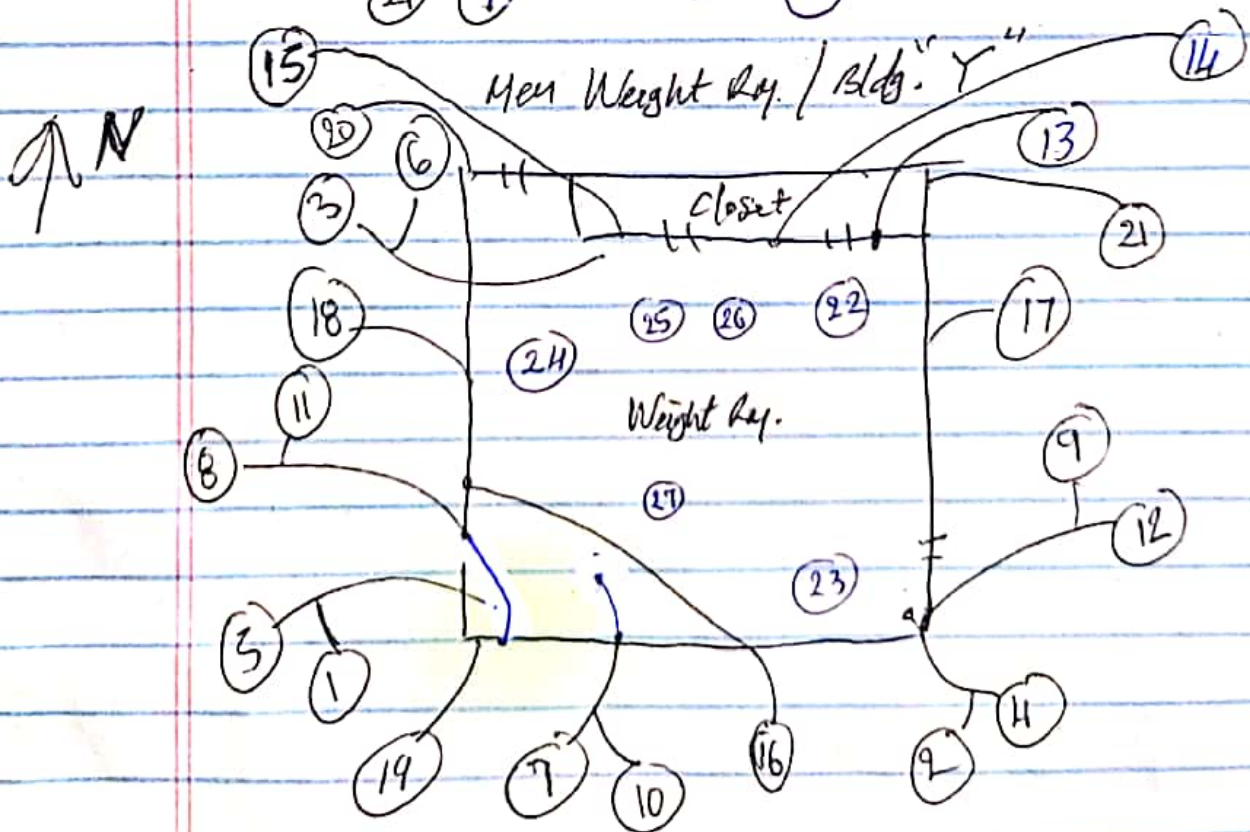 15
Men Weight Rm. / Bldg. "Y"
14
N
20
6
13
3
Closet
21
18
25
26
22
17
24
11
Weight Rm.
8
9
27
12
23
5
1
4
19
7
10
16
2